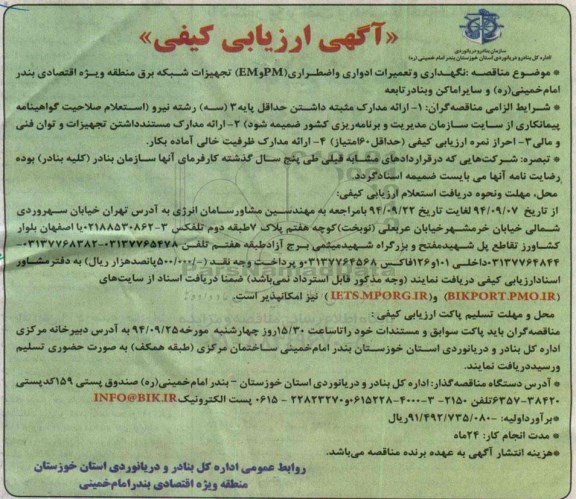 سازمان بنادر و دریانوردی
اداره کل بنادر و دریانوردی استان خوزستان بندر امام خمینی (ره)
«آگهی ارزیابی کیفی»
* موضوع مناقصه :نگهداری وتعمیرات ادواری واضطراری(PMوEM) تجهیزات شبکه برق منطقه ویژه اقتصادی بندر
امام‌خمینی(ره) و سایراماکن وبنادرتابعه
* شرایط الزامی مناقصه‌گران: ۱- ارائه مدارک مثبته داشتن حداقل پایه۳ (سه) رشته نیرو (استعلام صلاحیت گواهینامه
پیمانکاری از سایت سازمان مدیریت و برنامه‌ریزی کشور ضمیمه شود) ۲- ارائه مدارک مستندداشتن تجهیزات و توان فنی
و مالی۳- احراز نمره ارزیابی کیفی (حداقل۶۰امتیاز) ۴- ارائه مدارک ظرفیت خالی آماده بکار.
* تبصره: شرکت‌هایی که درقراردادهای مشابه قبلی طی پنج سال گذشته کارفرمای آنها سازمان بنادر (کلیه بنادر) بوده
رضایت نامه آنها می بایست ضمیمه اسنادگردد.
محل، مهلت ونحوه دریافت استعلام ارزیابی کیفی:
از تاریخ ۹۴/۰۹/۰۷ لغایت تاریخ ۹۴/۰۹/۲۲ بامراجعه به مهندسین مشاورسامان انرژی به آدرس تهران خیابان سهروردی
شمالی خیابان خرمشهرخیابان عربعلی (نوبخت)کوچه هفتم پلاک ۷طبقه دوم تلفکس ۳-۰۲۱۸۸۵۳۰۸۶۲یا اصفهان بلوار
کشاورز تقاطع پل شهیدمفتح و بزرگراه شهیدمیثمی برج آزادطبقه هفتم تلفن ۰۳۱۳۷۷۶۵۴۷۸-۰۳۱۳۷۷۶۸۳۸۲-
۰۳۱۳۷۷۶۴۸۴۴داخلی ۱۰۱و۱۲۶فاکس ۰۳۱۳۷۷۶۴۵۶۸و پرداخت وجه نقد (-/۵۰۰/۰۰۰پانصدهزار ریال) به دفترمشاور
اسنادارزیابی کیفی دریافت نمایند (وجه مذکور قابل استرداد نمی‌باشد) ضمنا دریافت اسناد از سایت‌های
(BIKPORT.PMO.IR) و(IETS.MPORG.IR ) نیز امکانپذیر است.
محل و مهلت تسلیم پاکت ارزیابی کیفی :
مناقصه‌گران باید پاکت سوابق و مستندات خود راتاساعت ۱۵/۳۰روز چهارشنبه مورخه۹۴/۰۹/۲۵ به آدرس دبیرخانه مرکزی
اداره کل بنادر و دریانوردی استان خوزستان بندر امام‌خمینی ساختمان مرکزی (طبقه همکف) به صورت حضوری تسلیم
ورسیددریافت نمایند.
* آدرس دستگاه مناقصه‌گذار: اداره کل بنادر و دریانوردی استان خوزستان - بندر امام‌خمینی(ره) صندوق پستی ۱۵۹کدپستی
۳۸۴۲۰-۶۳۵۷تلفن ۲۱۵۰- ۳-۴۰۰۰-۰۶۱۵۲۲۸و۲۲۸۲۳۲۷۰ - ۰۶۱۵ پست الکترونیکINFO@BIK.IR
*برآورداولیه: -۹۱/۴۹۲/۷۳۵/۰۸۰ریال
* مدت انجام کار: ۲۴ماه
*هزینه انتشار آگهی به عهده برنده مناقصه می‌باشد.
روابط عمومی اداره کل بنادر و دریانوردی استان خوزستان
منطقه ویژه اقتصادی بندرامام‌خمینی
ParsNamadData